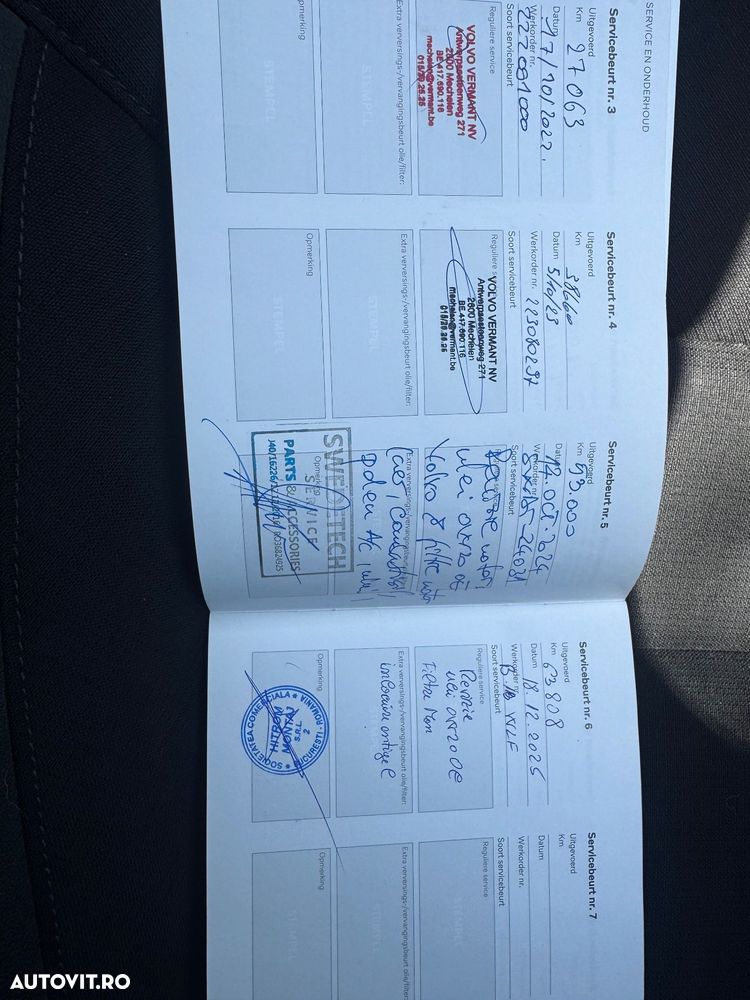 SERVICE EN ONDERHOUD
Servicebeurt nr. 3
Uitgevoerd
Km 27063
Datum 17/10/2022.
Werkorder nr.
Soort servicebeurt
Reguliere service
VOLVO VERMANT NV
Antwerpsesteenweg 271
2800 Mechelen
BE 417.690.116
mechelen@vermant.be
015/28.28.25
Extra verversings-/vervangingsbeurt olie/filter:
STEMPEL
Opmerking
STEMPEL
Servicebeurt nr. 4
Uitgevoerd
Km 38660
Datum 5/10/23
Werkorder nr. 223080297
Soort servicebeurt
Reguliere
VOLVO VERMANT NV
Antwerpsesteenweg 271
2800 Mechelen
BE 417.690.116
mechelen@vermant.be
Extra verversings-/vervangingsbeurt olie/filter:
STEMPEL
Opmerking
STEMPEL
Servicebeurt nr. 5
Uitgevoerd
Km 53.000
Datum 14.oct.2024
Werkorder nr.
Soort servicebeurt
Reguliere service
Revizie motor,
ulei 0W20 de
Volvo & filtre
Extra verversings-/vervangingsbeurt olie/filter:
(aer, combustibil,
polen AC, ulei)
Opmerking
SWEDETECH
SERVICE
PARTS & ACCESSORIES
Servicebeurt nr. 6
Uitgevoerd
Km 63808
Datum 18.12.2025
Werkorder nr.
Soort servicebeurt
Reguliere service
Revizie
ulei 0W20
Filtru Man
Extra verversings-/vervangingsbeurt olie/filter:
inlocuire antigel
Opmerking
SOCIETATEA COMERCIALA
BUCURESTI - ROMANIA
S.R.L.
2
Servicebeurt nr. 7
Uitgevoerd
Km
Datum
Werkorder nr.
Soort servicebeurt
Reguliere service
STEMPEL
Extra verversings-/vervangingsbeurt olie/filter:
STEMPEL
Opmerking
STEMPEL
AUTOVIT.RO